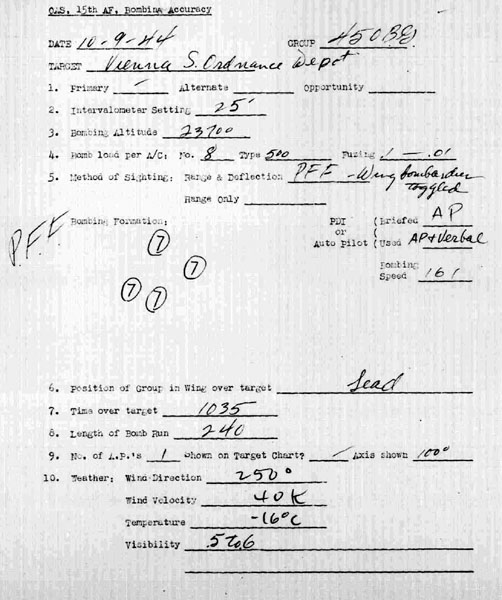 OAS, 15th AF, Bombing Accuracy
DATE 10-9-44 GROUP 450 BG
TARGET Vienna S. Ordnance Depot
1. Primary ✓ Alternate Opportunity
2. Intervalometer Setting 25'
3. Bombing Altitude 23700
4. Bomb load per A/C: No. 8 Type 500 Fuzing .1 — .01
5. Method of Sighting: Range & Deflection PFF - Wing bombardier toggled
Range Only
P.F.F. Bombing Formation: PDI or Auto Pilot (Briefed AP
(Used AP+Verbal
Bombing Speed 161
7
7
7 7
6. Position of Group in Wing over target Lead
7. Time over target 1035
8. Length of Bomb Run 240
9. No. of A.P.'s 1 Shown on Target Chart? ✓ Axis shown 100°
10. Weather: Wind Direction 250°
Wind Velocity 40K
Temperature -16°C
Visibility 5 to 6